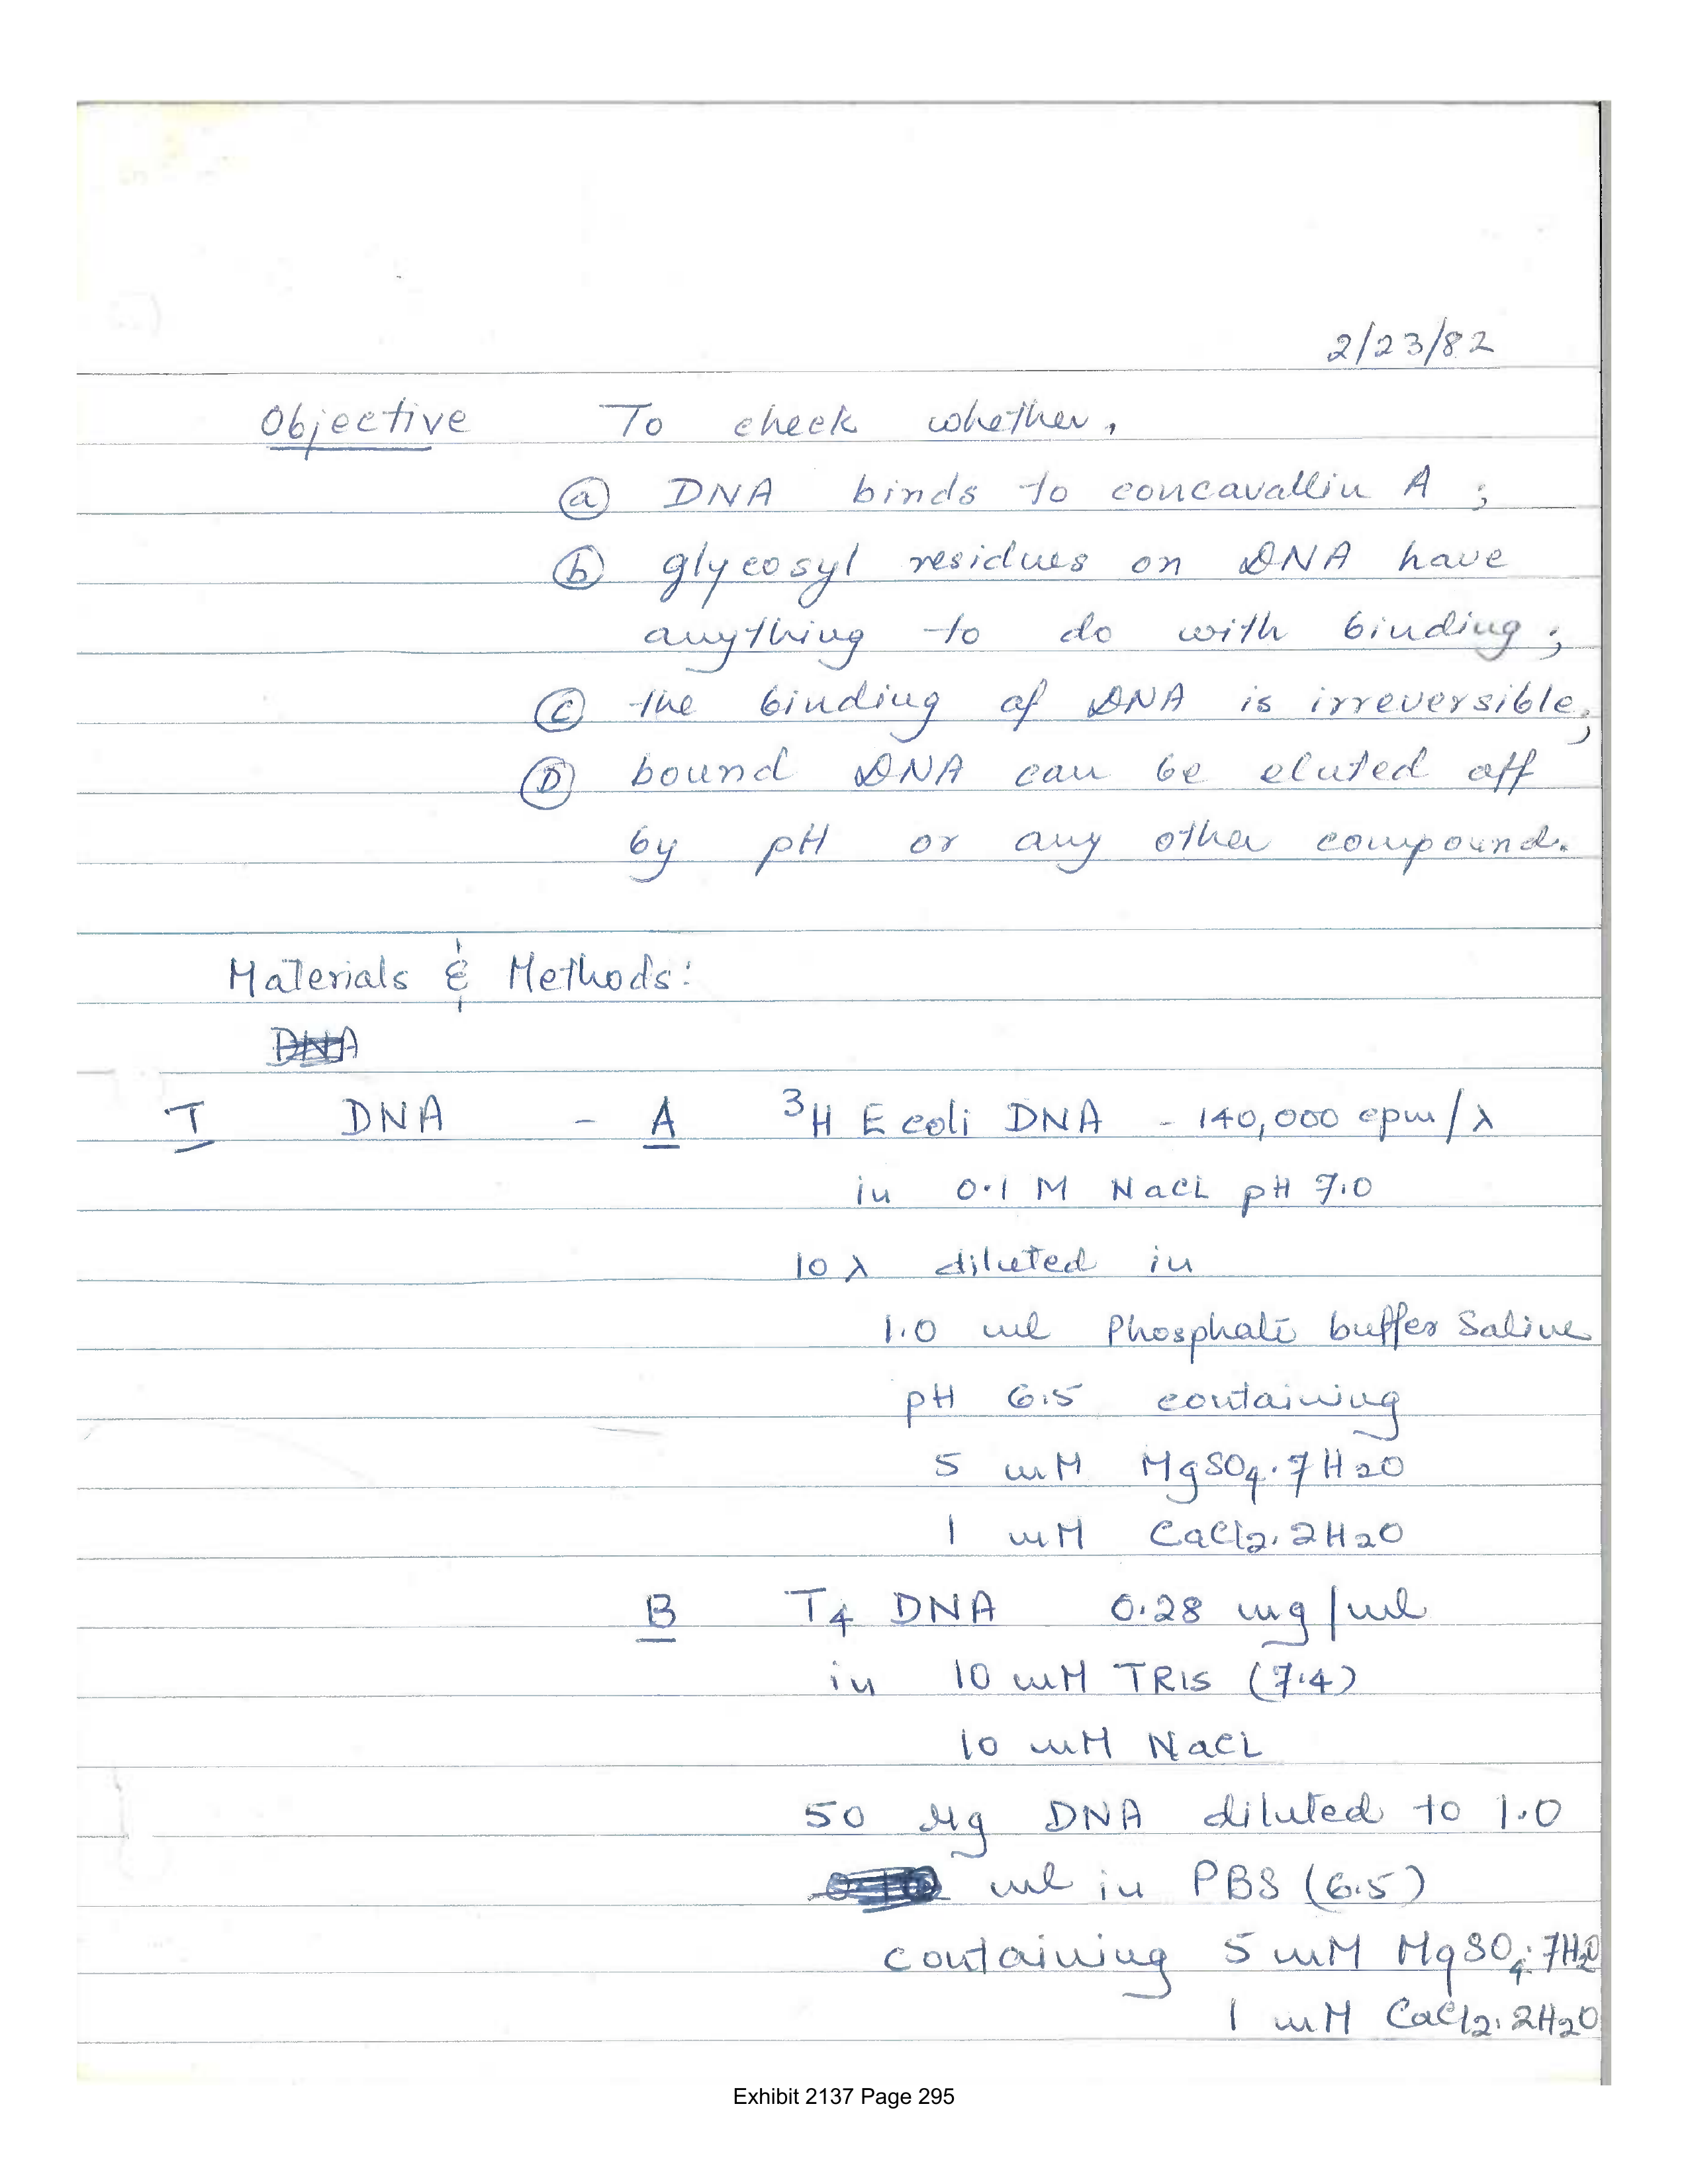 2/23/82
Objective To check whether,
(a) DNA binds to concavallin A ;
(b) glycosyl residues on DNA have
anything to do with binding ;
(c) the binding of DNA is irreversible;
(D) bound DNA can be eluted off
by pH or any other compound.
Materials & Methods:
DNA
I DNA - A ³H E coli DNA - 140,000 cpm/λ
in 0.1 M NaCl pH 7.0
10 λ diluted in
1.0 ml Phosphate buffer Saline
pH 6.5 containing
5 mM MgSO₄.7H₂O
1 mM CaCl₂.2H₂O
B T₄ DNA 0.28 mg/ml
in 10 mM TRIS (7.4)
10 mM NaCl
50 µg DNA diluted to 1.0
ml in PBS (6.5)
containing 5 mM MgSO₄.7H₂O
1 mM CaCl₂.2H₂O
Exhibit 2137 Page 295